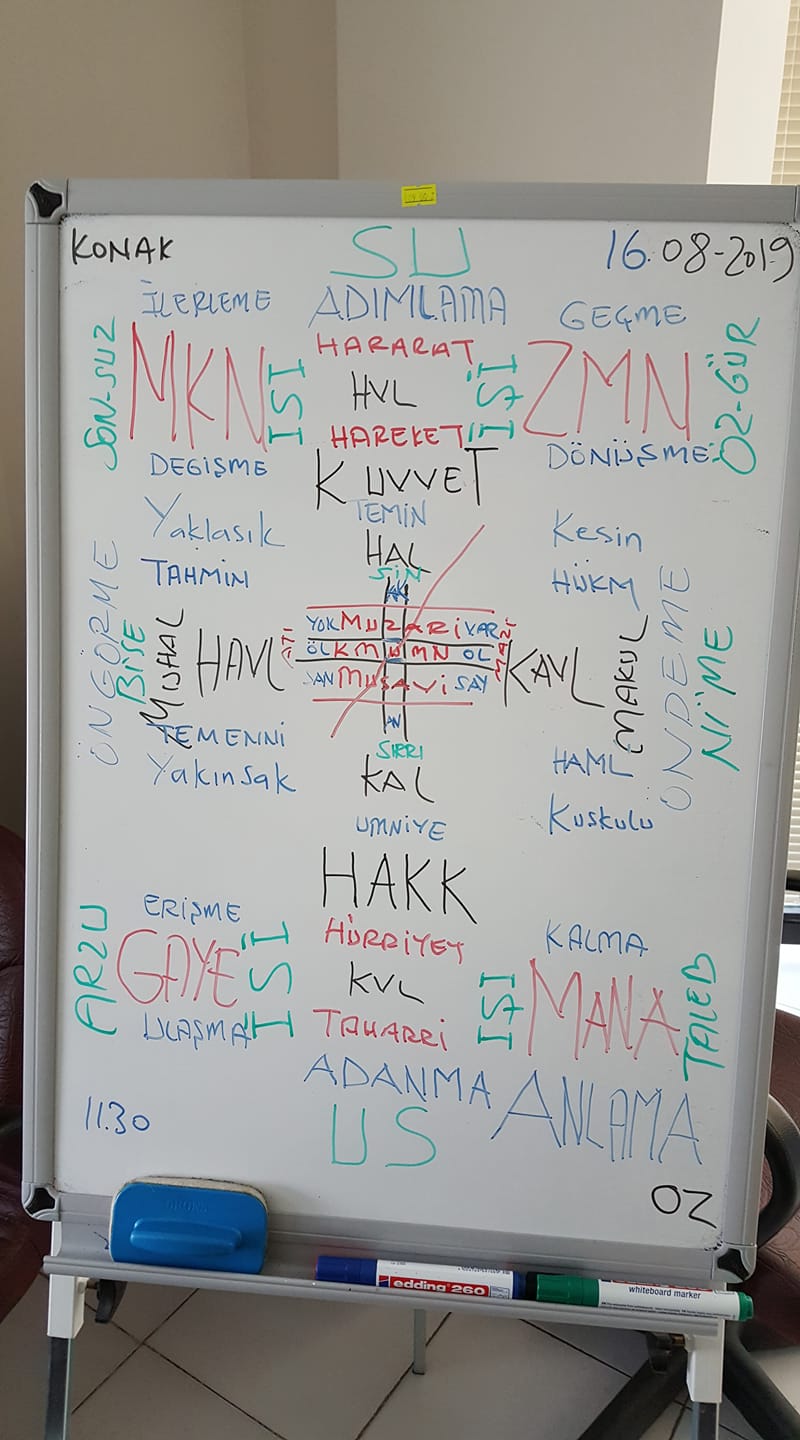 KONAK SU 16.08-2019
İLERLEME ADIMLAMA GEÇME
SON-SUZ MKN ISI HARARAT IŞI ZMN ÖZ-GÜR
HVL
HAREKET
DEGİŞME KUVVET DÖNÜŞME
Yaklaşık TEMİN Kesin
TAHMİN HAL HÜKM
SİN
ÖNGÖRME BİSE MUHAL HAVL KAVL MAKUL ÖNDEME NİME
YOK MUZARİ VAR
ÖL KMUMN OL
SAN MUSAVİ SAY
AN
TEMENNİ SIRRI HAML
Yakınsak KAL Kuşkulu
UMNİYE
HAKK
ERİŞME HÜRRİYET KALMA
ARZU GAYE ISI KVL IŞI MANA TALEB
ULAŞMA TAHARRİ
ADANMA ANLAMA
11.30 US
OZ
edding 260
whiteboard marker